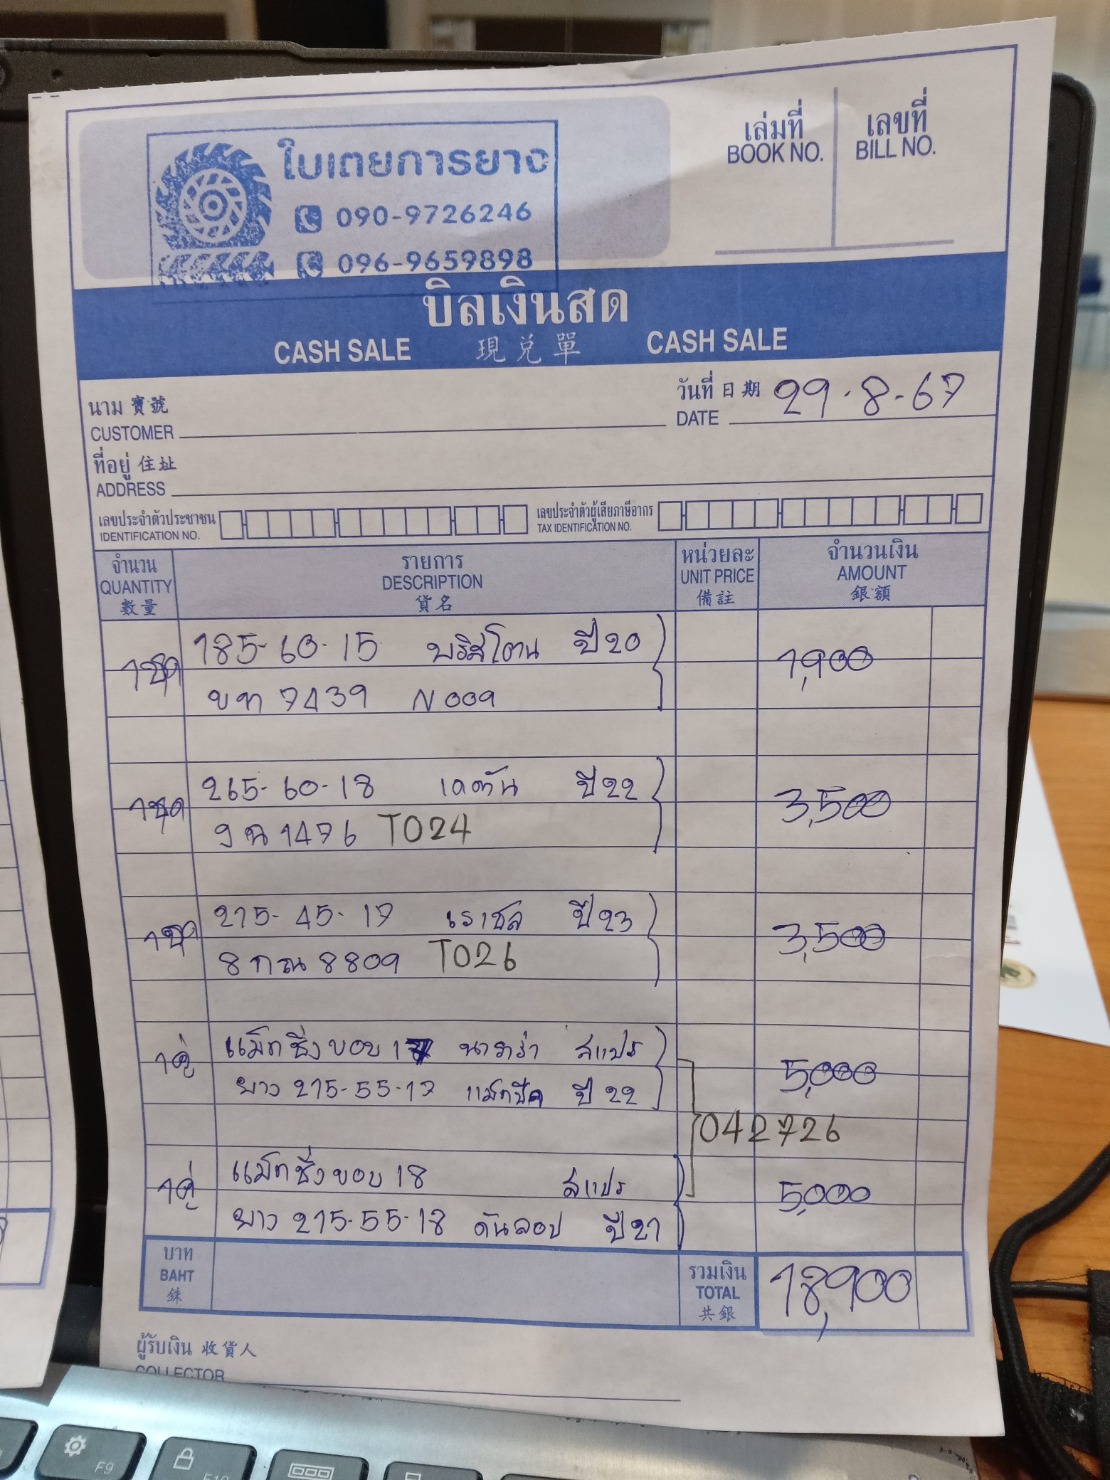 ใบเตยการยาง
090-9726246
096-9659898
เล่มที่
BOOK NO.
เลขที่
BILL NO.
บิลเงินสด
CASH SALE 現兌單 CASH SALE
นาม 寶號
CUSTOMER
วันที่ 日期 29-8-67
DATE
ที่อยู่ 住址
ADDRESS
เลขประจำตัวประชาชน
IDENTIFICATION NO.
เลขประจำตัวผู้เสียภาษีอากร
TAX IDENTIFICATION NO.
จำนวน
QUANTITY
數量
รายการ
DESCRIPTION
貨名
หน่วยละ
UNIT PRICE
備註
จำนวนเงิน
AMOUNT
銀額
1ชุด 185-60-15 บริสโตน ปี 20 1,900
7439 N009
1ชุด 265-60-18 ปี 22 3,500
1476 T024
1ชุด 215-45-17 เรเชล ปี 23 3,500
8กฌ 8809 T026
1คู่ แม็กซิ่งขอบ 17 นาวาร่า สแปร 5,000
ยาง 215-55-17 แม็กซีส ปี 22
042726
1คู่ แม็กซิ่งขอบ 18 สแปร 5,000
ยาง 215-55-18 ดันลอป ปี 21
บาท
BAHT
銖
รวมเงิน
TOTAL
共銀
18,900
ผู้รับเงิน 收貨人
COLLECTOR
F9
F10